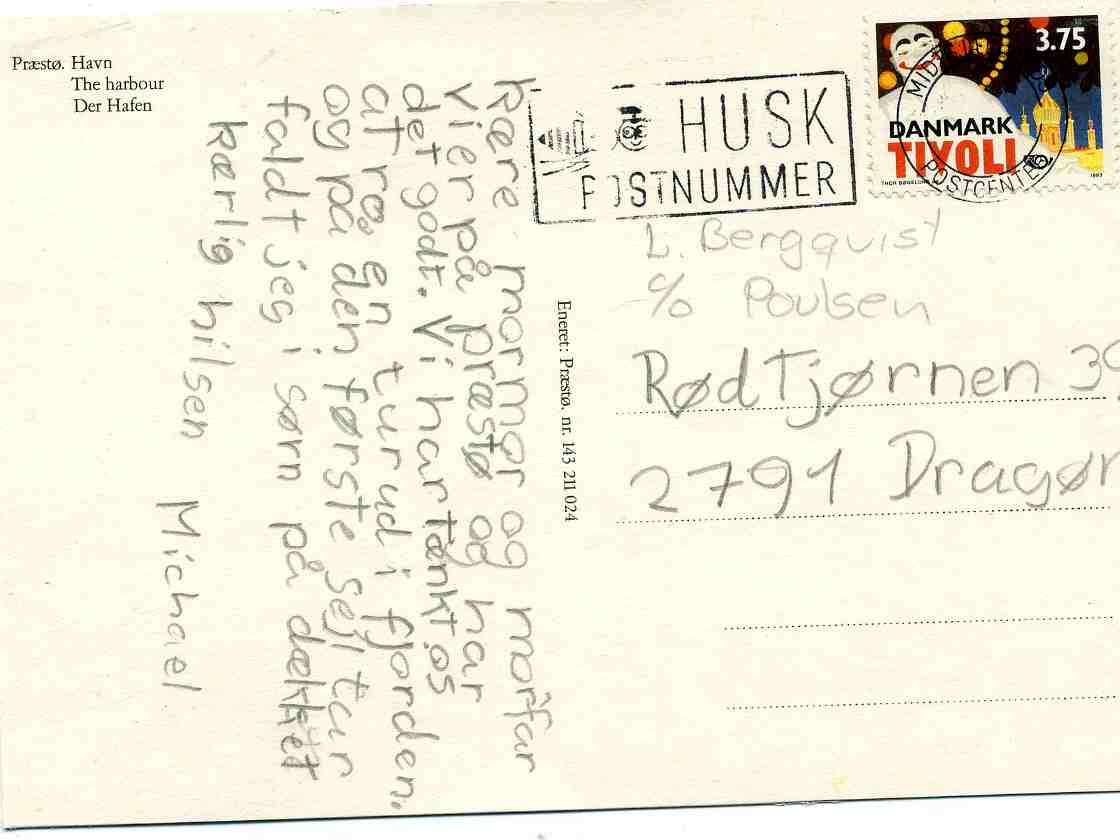 Præstø. Havn
The harbour
Der Hafen
HUSK
POSTNUMMER
3.75
DANMARK
TIVOLI
1993
POSTCENTER
Kære mormor og morfar
Vi er på præstø og har
det godt. Vi har tænkt os
at ro en tur ud i fjorden.
og på den første sejltur
faldt jeg i sørn på dækket
Kærlig hilsen Michael
Eneret: Præstø. nr. 143 211 024
L. Bergquist
c/o Poulsen
Rødtjørnen 39
2791 Dragør